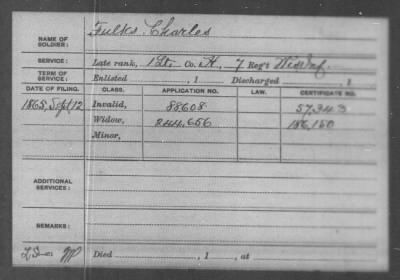 NAME OF SOLDIER: Fulks, Charles
SERVICE: Late rank, 1 Lt. Co. K, 7 Reg't Wis Inf.
TERM OF SERVICE: Enlisted , 1 Discharged , 1
DATE OF FILING. CLASS. APPLICATION NO. LAW. CERTIFICATE NO.
1865, Sept, 12 Invalid, 88608 57,343
Widow, 244,656 186,150
Minor,
ADDITIONAL SERVICES:
REMARKS:
Died , 1 , at